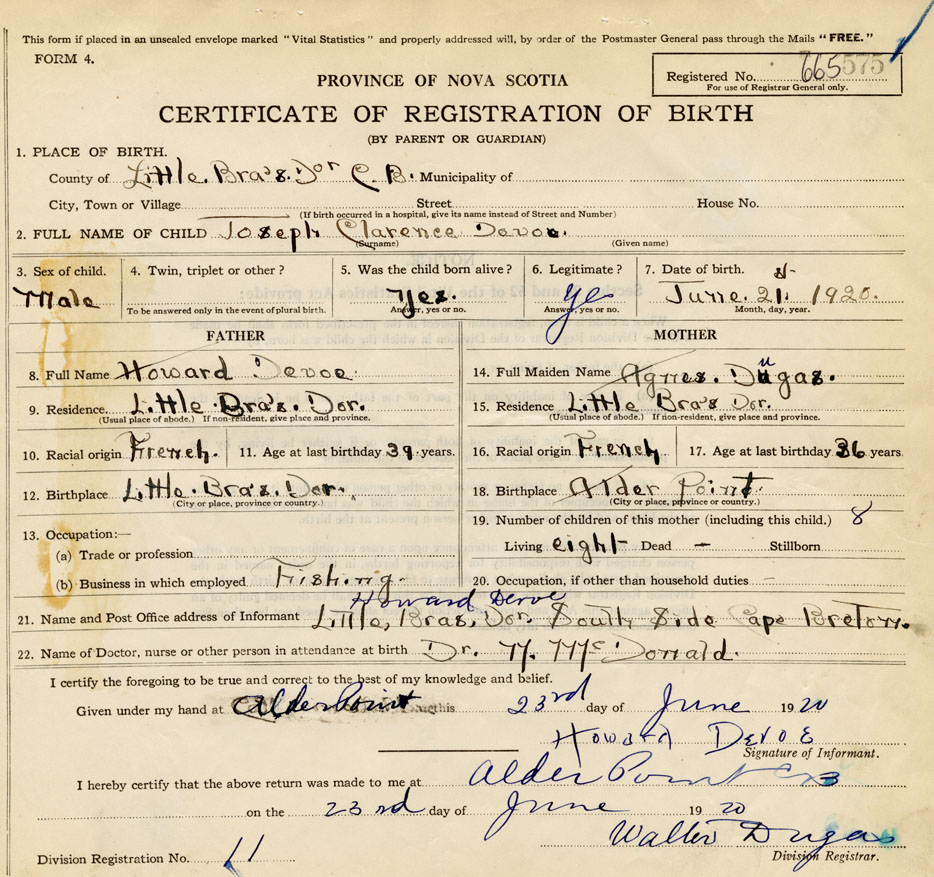 This form if placed in an unsealed envelope marked "Vital Statistics" and properly addressed will, by order of the Postmaster General pass through the Mails "FREE."
FORM 4.
Registered No. 665 575
For use of Registrar General only.
PROVINCE OF NOVA SCOTIA
CERTIFICATE OF REGISTRATION OF BIRTH
(BY PARENT OR GUARDIAN)
1. PLACE OF BIRTH.
County of Little. Bra's. Dor C. B. Municipality of
City, Town or Village Street House No.
(If birth occurred in a hospital, give its name instead of Street and Number)
2. FULL NAME OF CHILD Joseph Clarence Devoe.
(Surname) (Given name)
3. Sex of child. Male
4. Twin, triplet or other?
To be answered only in the event of plural birth.
5. Was the child born alive? Yes.
Answer, yes or no.
6. Legitimate? Yes
Answer, yes or no.
7. Date of birth. June. 21. 1920.
Month, day, year.
FATHER
8. Full Name Howard Devoe
9. Residence. Little. Bra's. Dor.
(Usual place of abode.) If non-resident, give place and province.
10. Racial origin French. 11. Age at last birthday 39 years.
12. Birthplace Little. Bra's. Dor.
(City or place, province or country.)
13. Occupation:—
(a) Trade or profession
(b) Business in which employed Fishing.
MOTHER
14. Full Maiden Name Agnes. Dugas.
15. Residence Little Bra's Dor.
(Usual place of abode.) If non-resident, give place and province.
16. Racial origin French 17. Age at last birthday 36 years
18. Birthplace Alder Point.
(City or place, province or country.)
19. Number of children of this mother (including this child.) 8
Living eight Dead — Stillborn
20. Occupation, if other than household duties —
Howard Devoe
21. Name and Post Office address of Informant Little, Bras, Dor. South Side Cape Breton.
22. Name of Doctor, nurse or other person in attendance at birth Dr. M. McDonald.
I certify the foregoing to be true and correct to the best of my knowledge and belief.
Given under my hand at Alder Point this 23rd day of June 1920
Howard DEVOE
Signature of Informant.
I hereby certify that the above return was made to me at Alder Point CB
on the 23rd day of June 1920
Walter Dugas
Division Registrar.
Division Registration No. 11